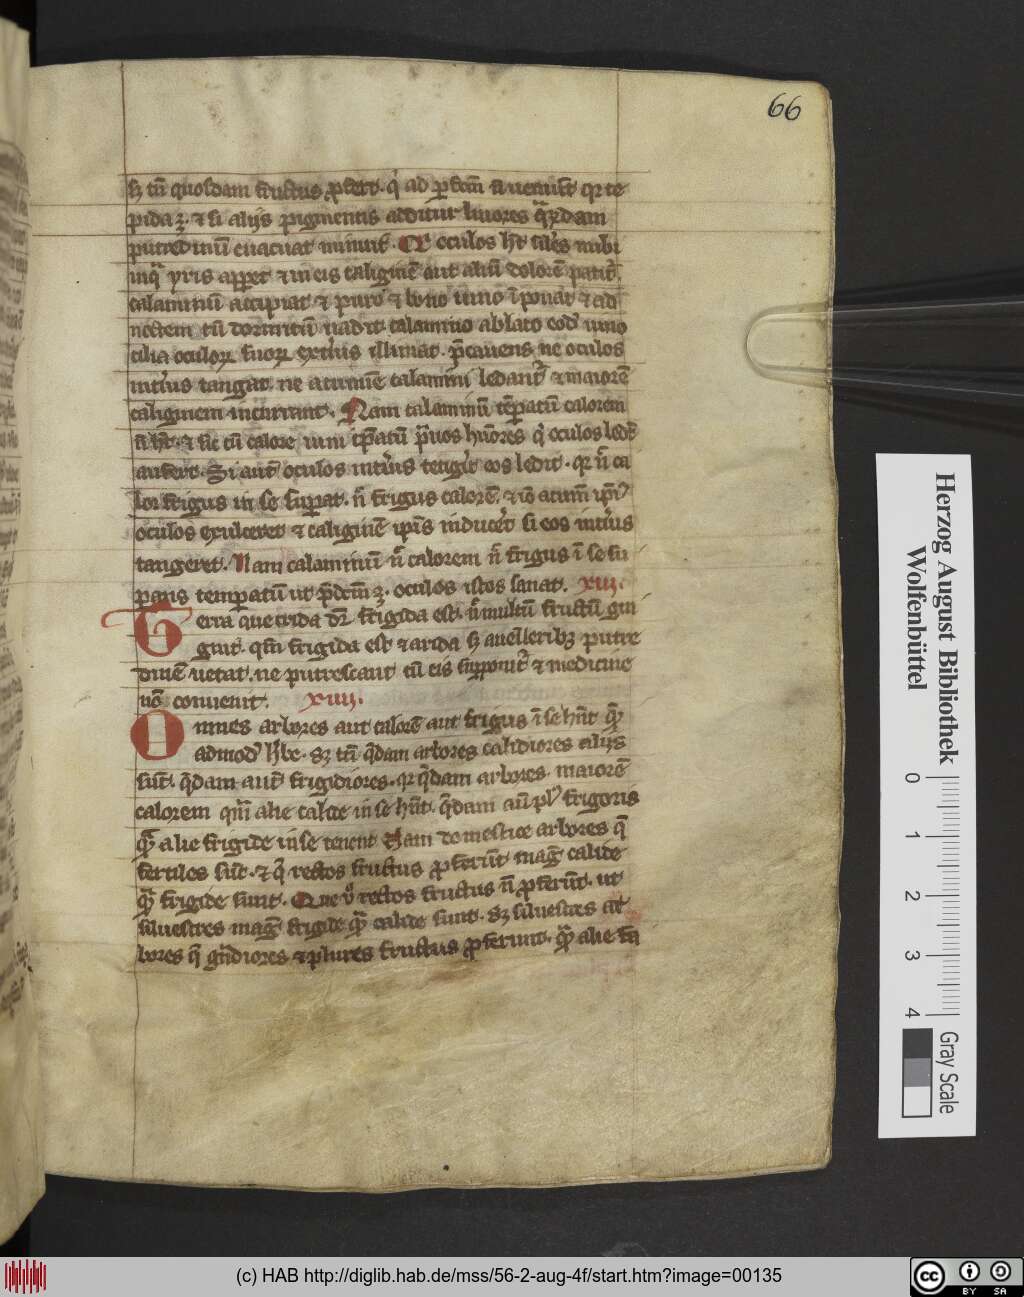 66
pida ⁊ si alijs pigmentis additur liuores
putredinū euacuat minuit. oculos hr̄t
yris ap̄pet ⁊ in eis caliginē aut aliū dolorē patit᷑
calaminū accipiat ⁊ puro ⁊ bono uino ī ponat ⁊ ad
noctem cū dormitū uadit calamino ablato eod̄ uino
cilia oculoꝝ suoꝝ exti᷑us illiniat. p̄cauens ne oculos
inti᷑us tangat. ne acumē calamini ledant᷑ ⁊ maiorē
caliginem incurrant. Nam calaminū tēpatū calorem
aufert. Si aut̄ oculos inti᷑us tetigit᷑ eos ledit. qꝛ n̄ ca
lor frigus in se supat. n̄ frigus calorē.
oculos exulceret ⁊ caliginē ipīs induceret si eos inti᷑us
tangeret. Nam calaminū n̄ calorem n̄ frigus ī se su
pans tempatū ut p̄dcm̄ ꝫ. oculos istos sanat. xiii.
Terra que crida dr̄ frigida est. n̄ multū fructū gig
nit. qm̄ frigida est ⁊ arida sꝫ auelleribꝫ putre
dinē uetat. ne putrescant cū eis supponit᷑ ⁊ medicine
nō conuenit. xiiii.
Omnes arbores aut calorē aut frigus ī se hn̄t quē
admod̄ h᷑be. sꝫ tn̄ q̄dam arbores calidiores alijs
sunt. q̄dam aut̄ frigidiores. qꝛ q̄dam arbores maiorē
calorem qm̄ alie calide in se hn̄t. q̄dam aū pl᷒ frigoris
qm̄ alie frigide in se tenent Nam domestice arbores q̄
fertiles sūt. ⁊ q̄ rectos fructus ꝓferūt mag᷒ calide
qm̄ frigide sunt. Que u᷑o rectos fructus n̄ ꝓferūt. ut
siluestres mag᷒ frigide qm̄ calide sunt. Sꝫ siluestres ar
bores q̄ gn̄diores ⁊ plures fructus ꝓferunt. qm̄ alie
Herzog August Bibliothek
Wolfenbüttel
0 1 2 3 4
Gray Scale
(c) HAB http://diglib.hab.de/mss/56-2-aug-4f/start.htm?image=00135
cc BY SA